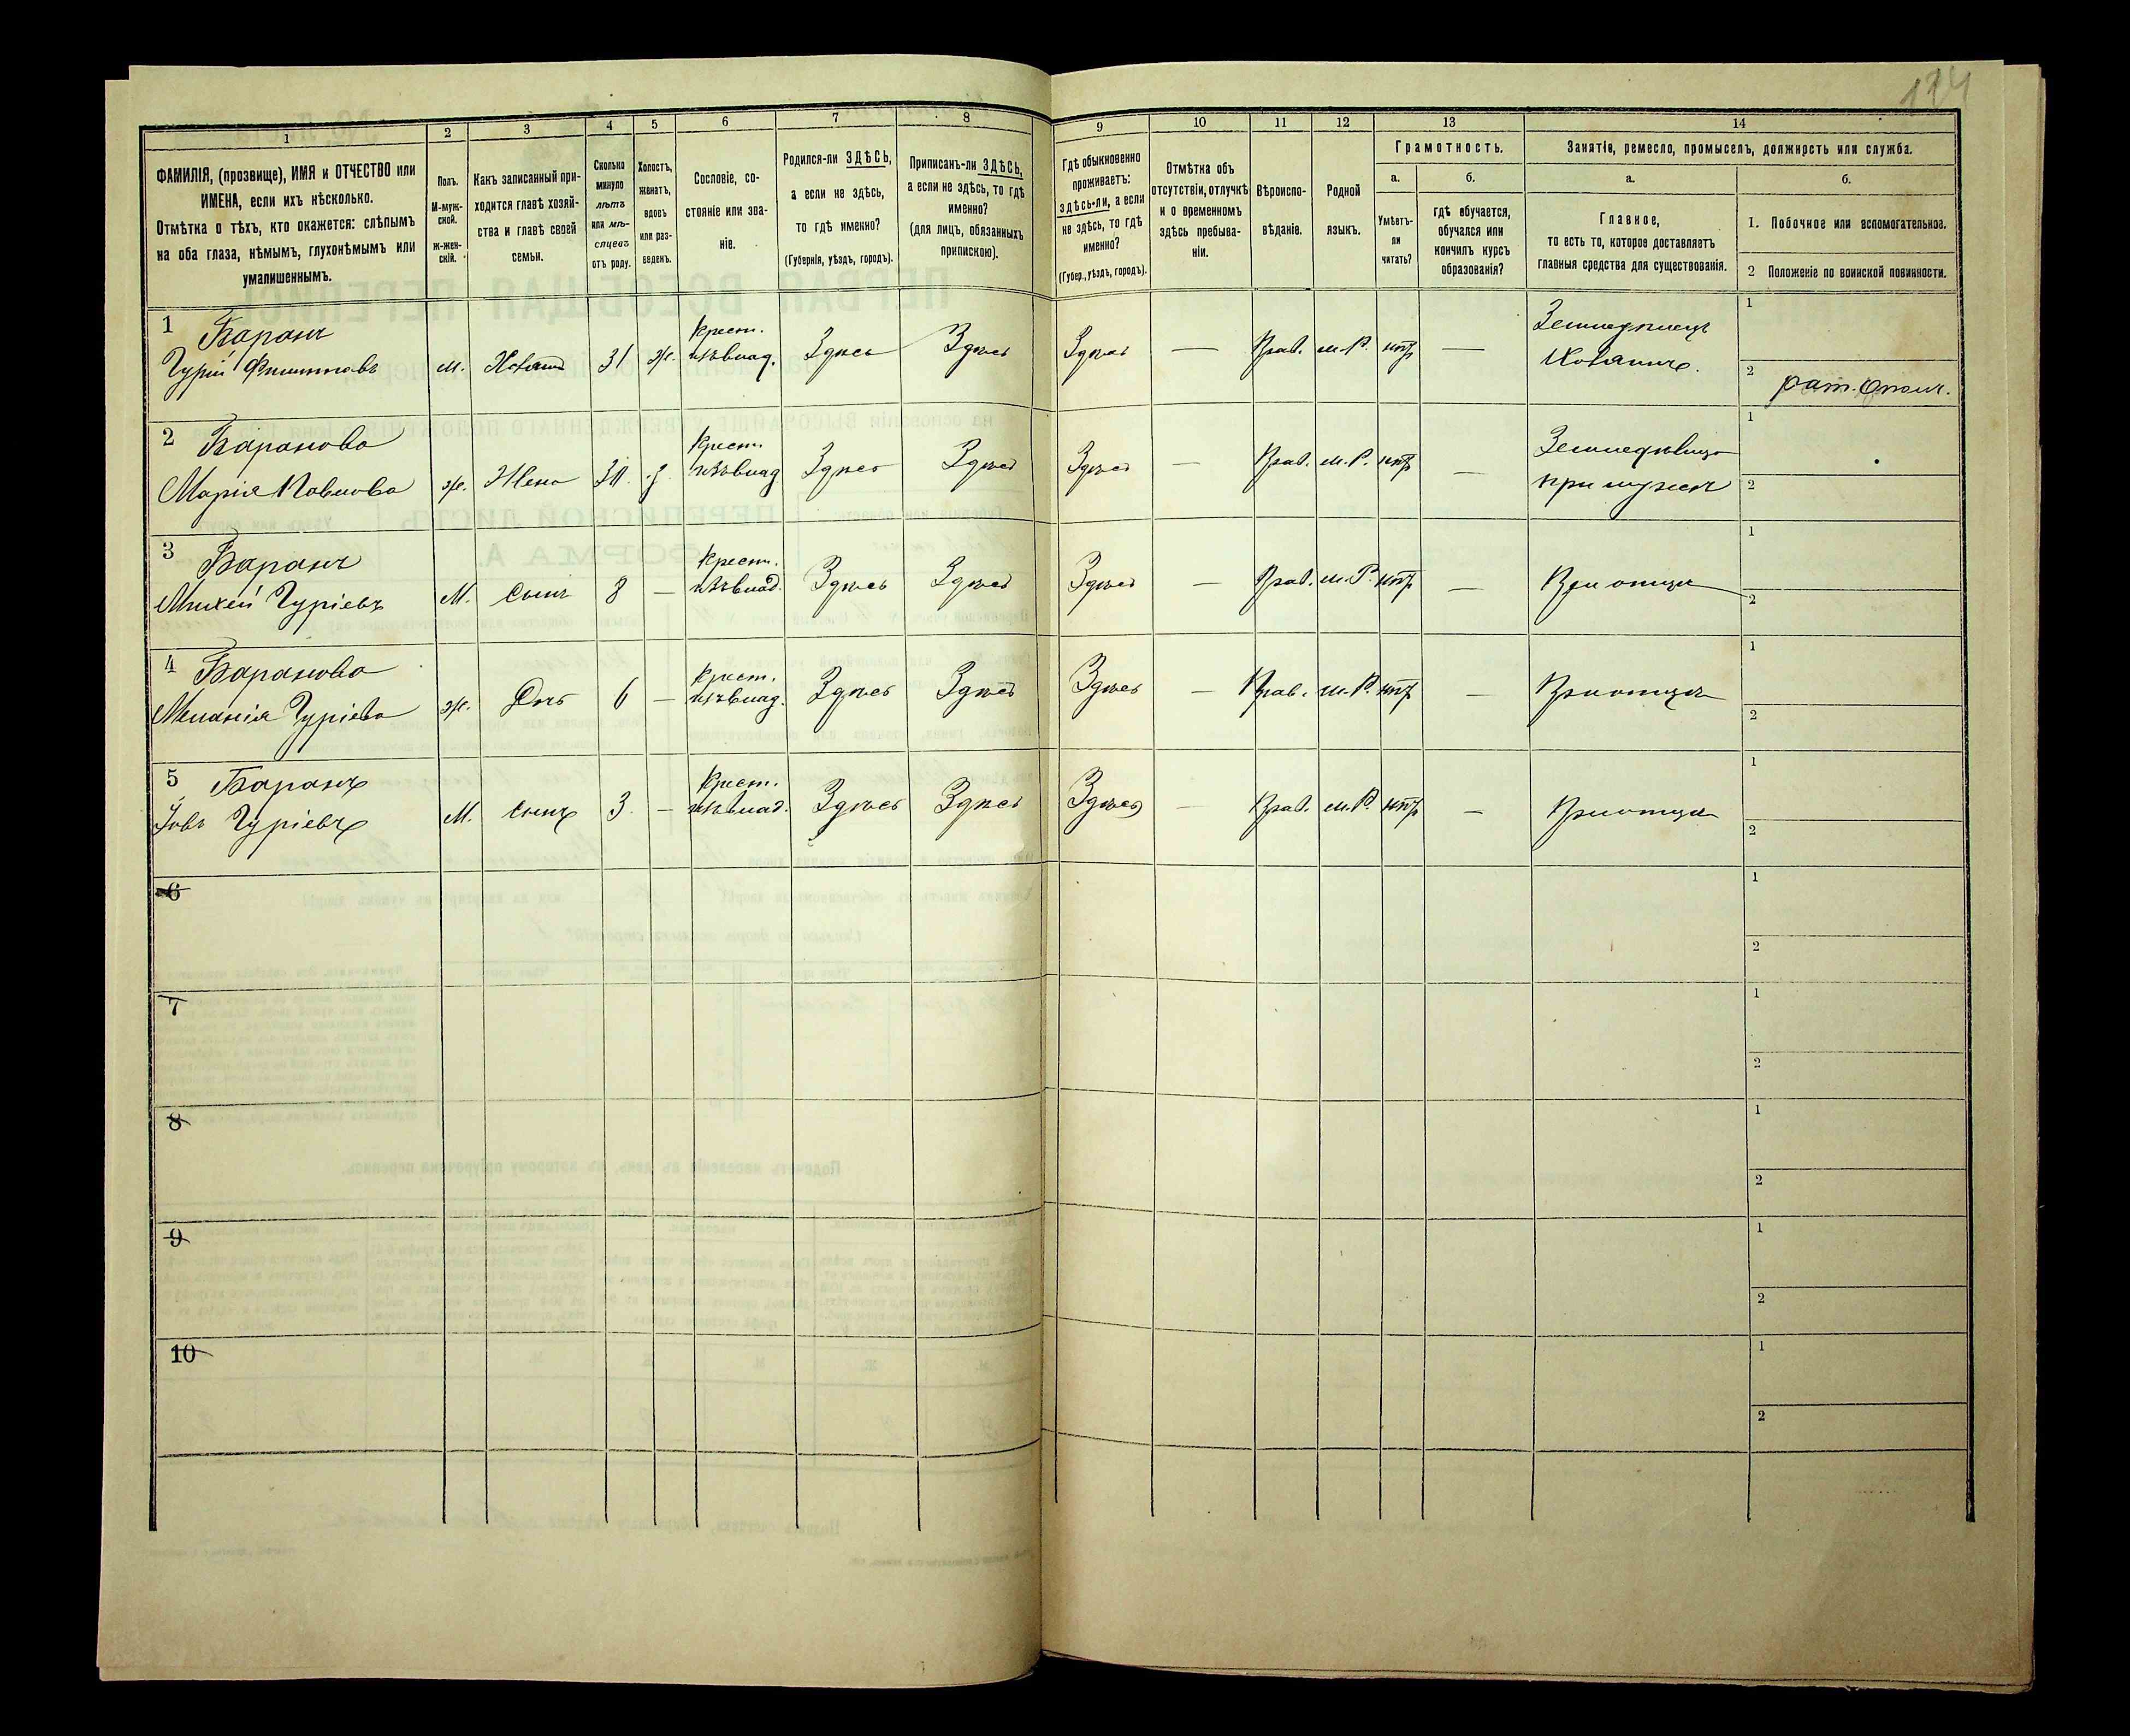 174
1
2
3
4
5
6
7
8
9
10
11
12
13
14
ФАМИЛІЯ, (прозвище), ИМЯ и ОТЧЕСТВО или
ИМЕНА, если ихъ нѣсколько.
Отмѣтка о тѣхъ, кто окажется: слѣпымъ
на оба глаза, нѣмымъ, глухонѣмымъ или
умалишеннымъ.
Полъ.
М-муж-
ской.
ж-жен-
скій.
Какъ записанный при-
ходится главѣ хозяй-
ства и главѣ своей
семьи.
Сколько
минуло
лѣтъ
или мѣ-
сяцевъ
отъ роду.
Холостъ,
женатъ,
вдовъ
или раз-
веденъ.
Сословіе, со-
стояніе или зва-
ніе.
Родился-ли ЗДѢСЬ,
а если не здѣсь,
то гдѣ именно?
(Губернія, уѣздъ, городъ).
Приписанъ-ли ЗДѢСЬ,
а если не здѣсь, то гдѣ
именно?
(для лицъ, обязанныхъ
припискою).
Гдѣ обыкновенно
проживаетъ:
здѣсь-ли, а если
не здѣсь, то гдѣ
именно?
(Губер., уѣздъ, городъ).
Отмѣтка объ
отсутствіи, отлучкѣ
и о временномъ
здѣсь пребыва-
ніи.
Вѣроиспо-
вѣданіе.
Родной
языкъ.
Грамотность.
а.
Умѣетъ-
ли
читать?
б.
гдѣ обучается,
обучался или
кончилъ курсъ
образованія?
Занятіе, ремесло, промыселъ, должность или служба.
а.
Главное,
то есть то, которое доставляетъ
главныя средства для существованія.
б.
1. Побочное или вспомогательное.
2 Положеніе по воинской повинности.
1 Баранъ
Гурій Филипповъ
м.
Хозяинъ
31
ж.
Крест.
изъ влад.
Здѣсь
Здѣсь
Здѣсь
—
Прав.
м.Р.
нѣт
—
Земледѣлецъ
Хозяинъ.
1
2 рат. Ополч.
2 Баранова
Марія Павлова
ж.
Жена
30
з.
Крест.
изъ влад
Здѣсь
Здѣсь
Здѣсь
—
Прав.
м.Р.
нѣт
—
Земледѣлица
при мужѣ
1
2
3 Баранъ
Михей Гуріевъ
М.
Сынъ
8
—
Крест.
изъ влад.
Здѣсь
Здѣсь
Здѣсь
—
Прав.
м.Р.
нѣт
—
При отцѣ
1
2
4 Баранова
Меланія Гуріева
ж.
Дочь
6
—
Крест.
изъ влад.
Здѣсь
Здѣсь
Здѣсь
—
Прав.
м.Р.
нѣт
—
При отцѣ
1
2
5 Баранъ
Іовъ Гуріевъ
М.
Сынъ
3
—
Крест.
изъ влад.
Здѣсь
Здѣсь
Здѣсь
—
Прав.
м.Р.
нѣт
—
При отцѣ
1
2
6
1
2
7
1
2
8
1
2
9
1
2
10
1
2